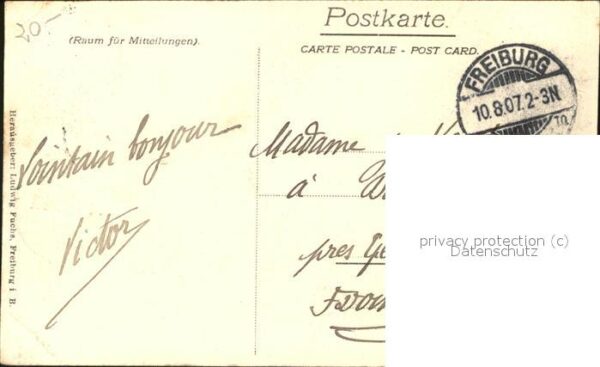 20.-
Postkarte.
(Raum für Mitteilungen).
CARTE POSTALE - POST CARD.
FREIBURG
10.8.07.2-3N
Lointain bonjour
Victor
Madame
à
près
Herausgeber: Ludwig Fuchs, Freiburg i. B.
privacy protection (c)
Datenschutz